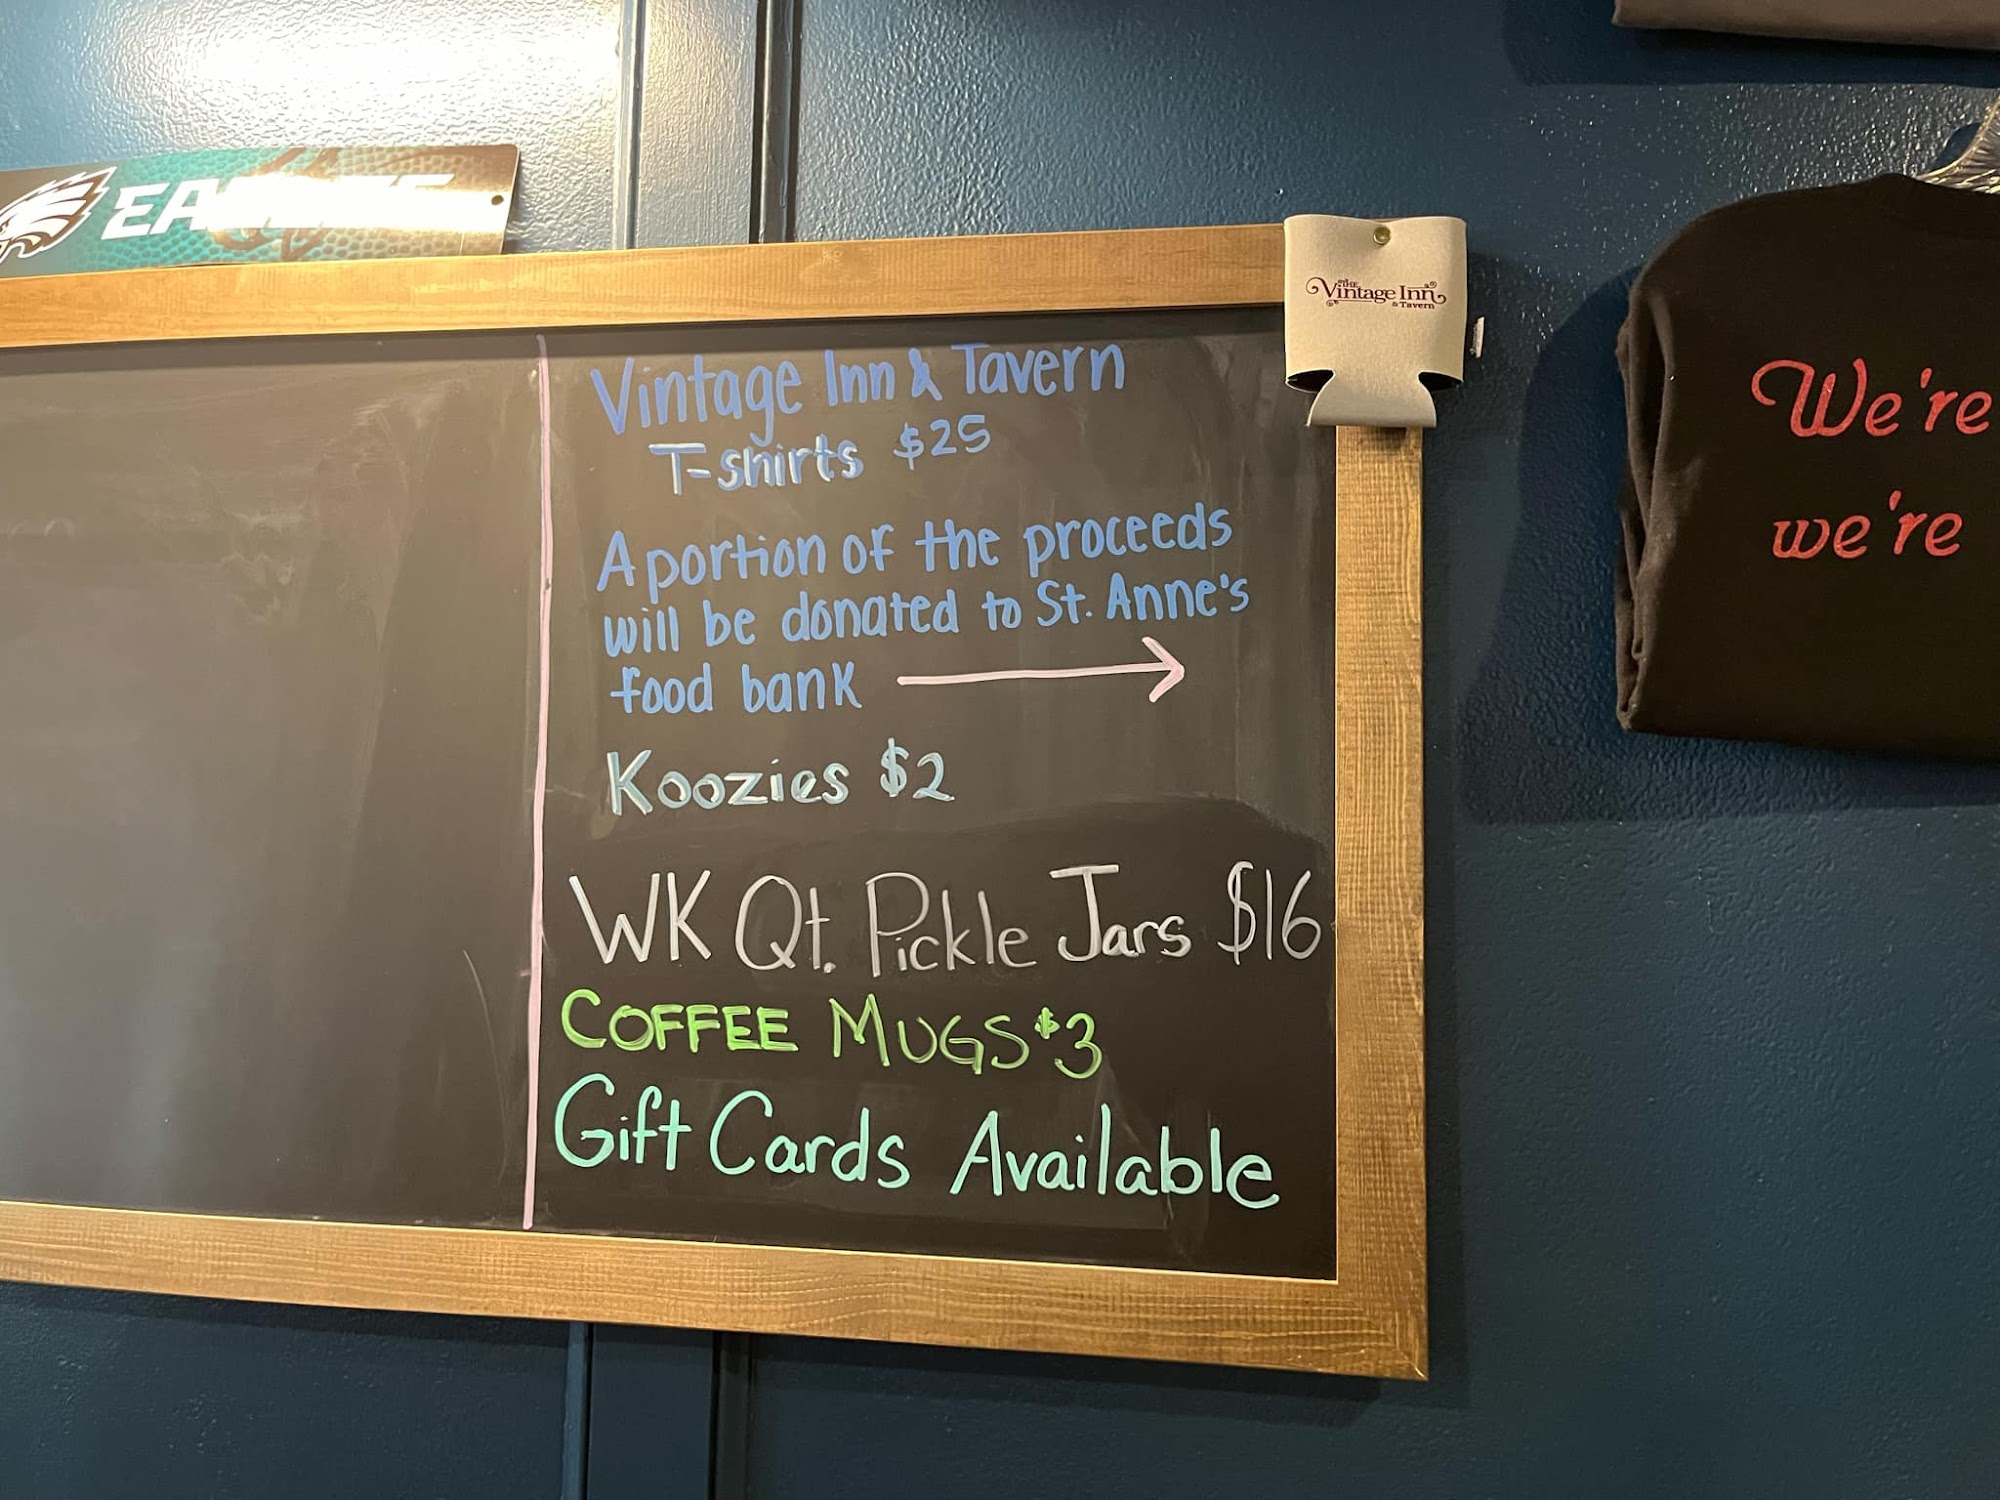 THE
Vintage Inn
& Tavern
Vintage Inn & Tavern
T-shirts $25
A portion of the proceeds
will be donated to St. Anne's
food bank
Koozies $2
WK Qt. Pickle Jars $16
COFFEE MUGS $3
Gift Cards Available
We're
we're